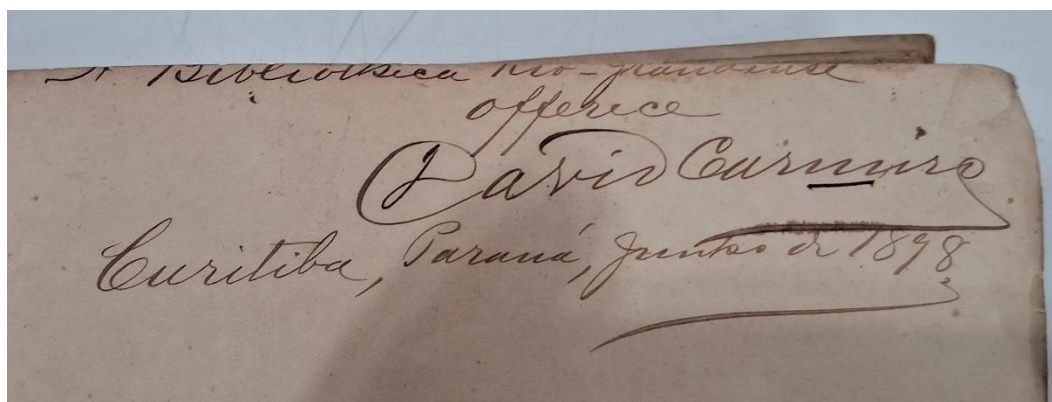 A Bibliotheca Rio-Grandense
offerece
David Carneiro
Curitiba, Paraná, Junho de 1898